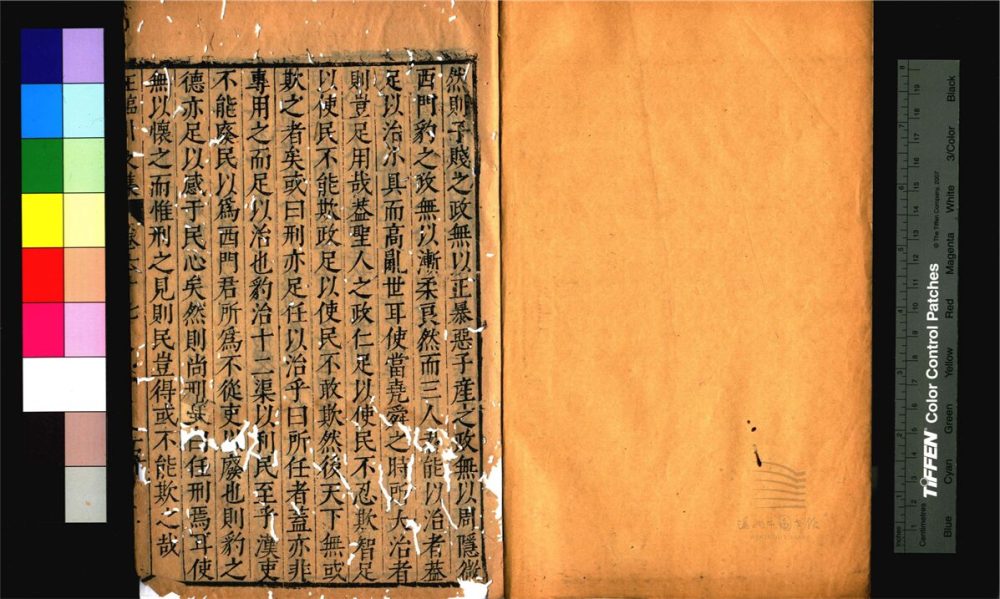 然則子賤之政無以正暴惡子產之政無以周隱微
西門豹之政無以漸柔良然而三人者能以治者葢
足以治小具而高亂世耳使當堯舜之時所大治者
則豈足用哉葢聖人之政仁足以使民不忍欺智足
以使民不能欺政足以使民不敢欺然後天下無或
欺之者矣或曰刑亦足任以治乎曰所任者蓋亦非
專用之而足以治也豹治十二渠以利民至乎漢吏
不能廢民以爲西門君所爲不從吏以廢也則豹之
德亦足以感于民心矣然則尚刑故曰任刑焉耳使
無以懷之而惟刑之見則民豈得或不能欺之哉
臨川文集 卷
TIFFEN Color Control Patches
© The Tiffen Company, 2007
Blue Cyan Green Yellow Red Magenta White 3/Color Black
Centimetres
Inches